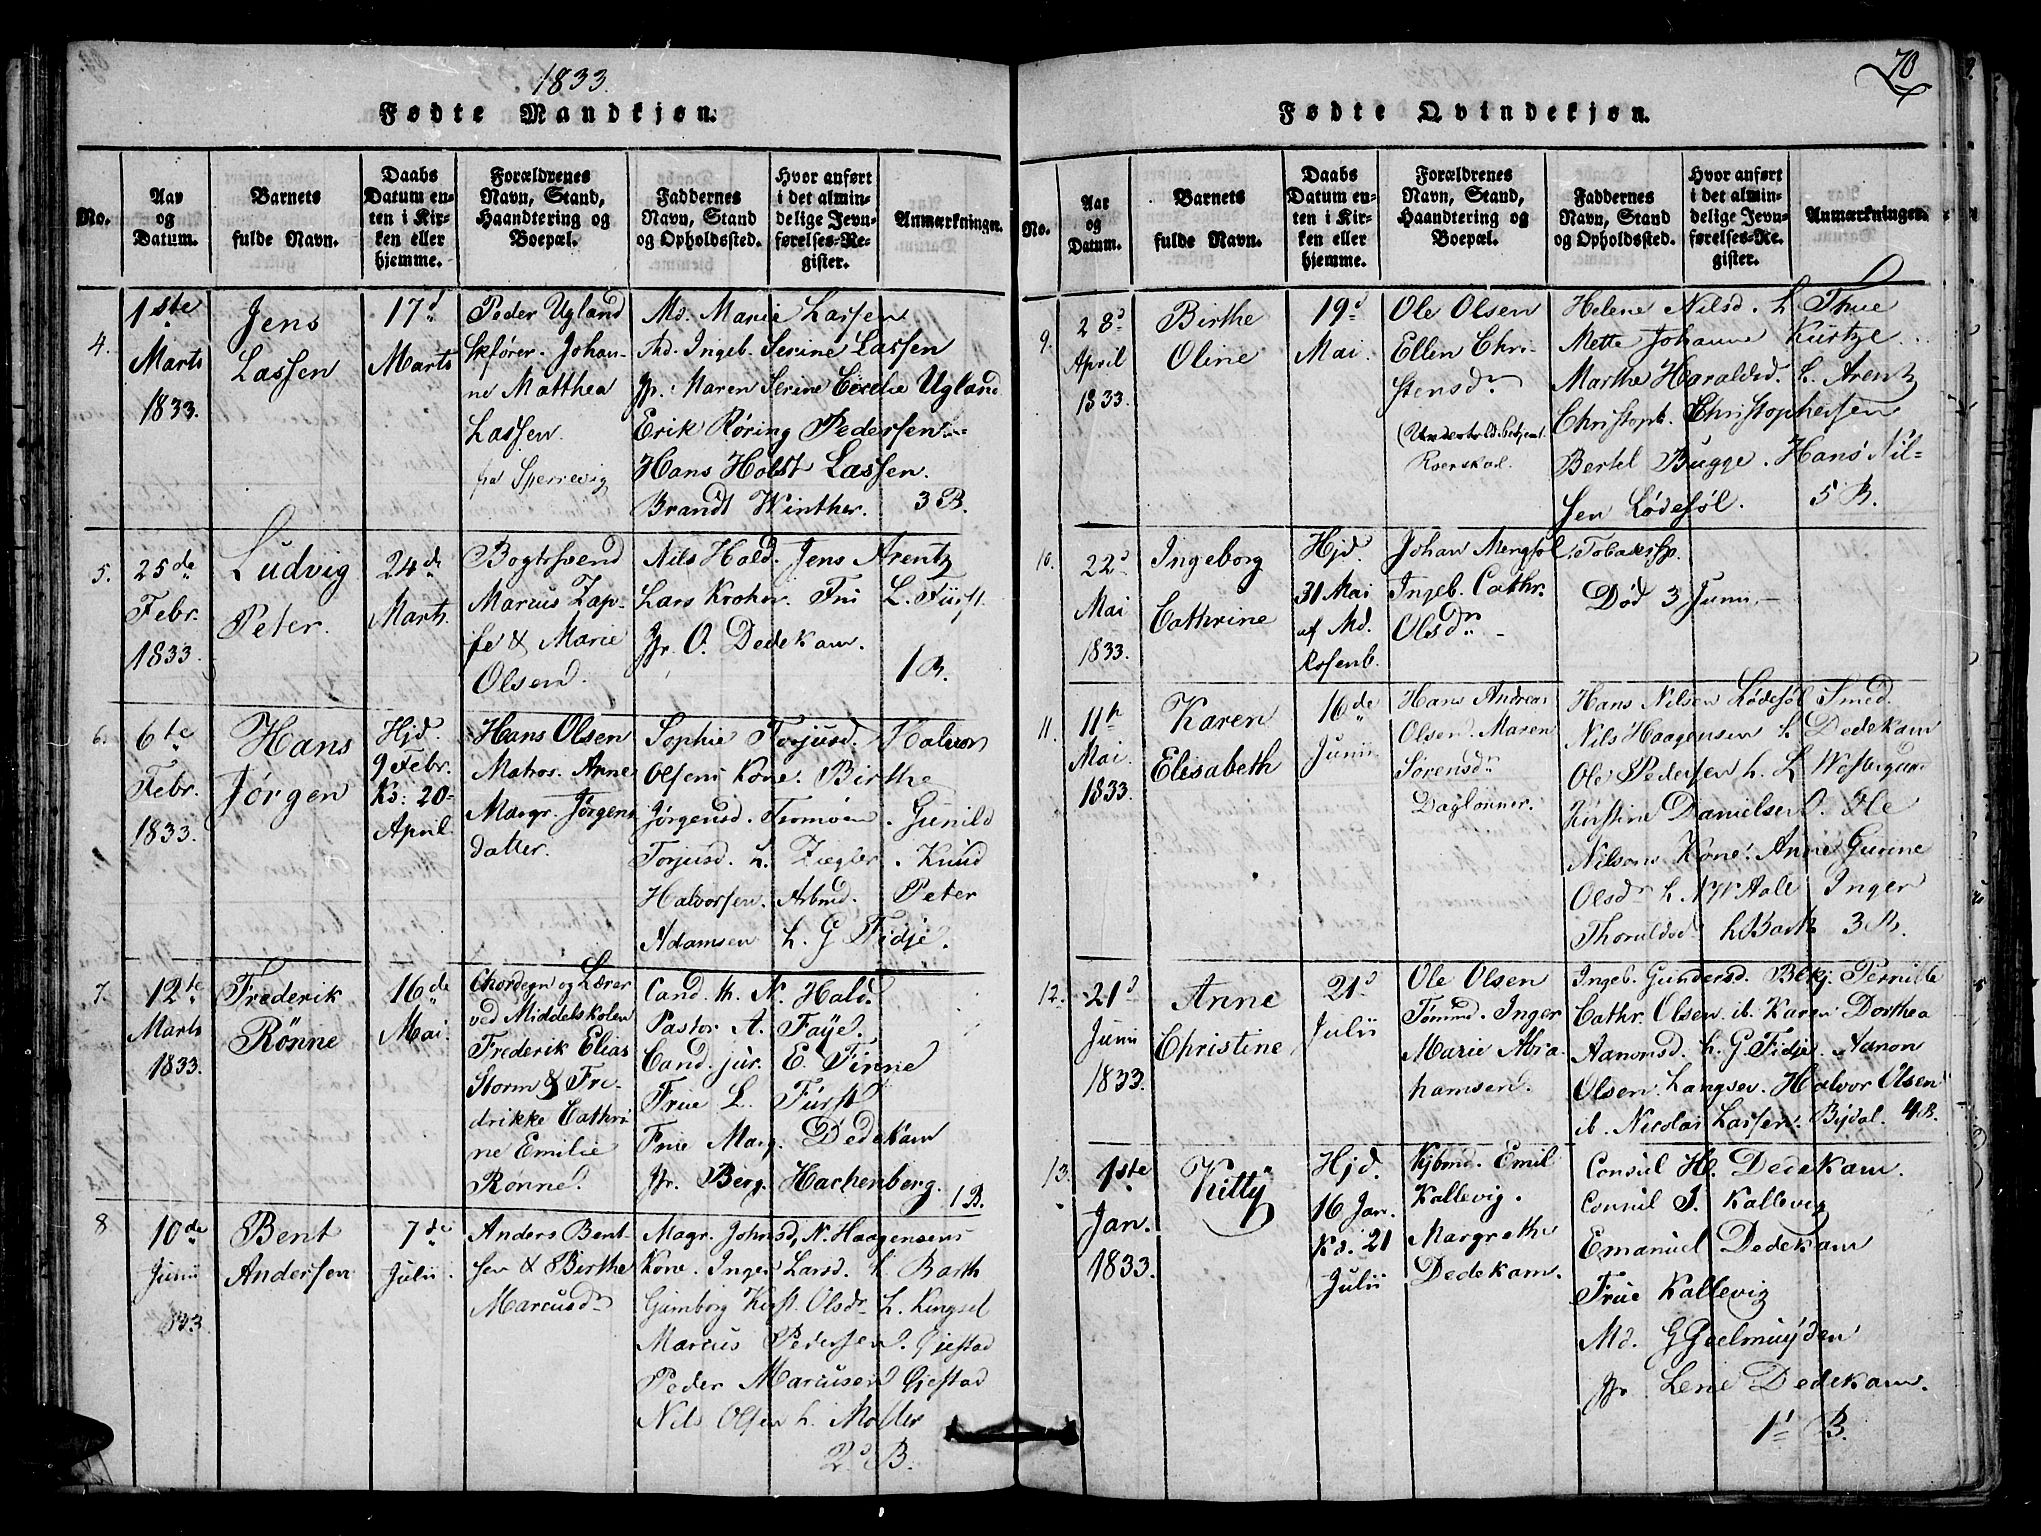 1833.
Fødte Mandkjøn.
No.
Aar og Datum.
Barnets fulde Navn.
Daabs Datum enten i Kirken eller hjemme.
Forældrenes Navn, Stand, Haandtering og Boepæl.
Faddernes Navn, Stand og Opholdssted.
Hvor anført i det almindelige Jevnførelses-Register.
Anmærkninger.
4.
1ste
Marts
1833.
Jens
Lassen
17d
Marts
Peder Ugland
Skfører. Johan-
ne Matthea
Lassen.
Sperrevig
Md. Marie Lassen
Md. Ingeb. Serine Lassen
Jfr. Maren Serine Cecilie Ugland
Erik Röring Pedersen
Hans Holst Lassen.
Brandt Winther. 3 B.
5.
25de
Febr.
1833.
Ludvig
Peter.
24de
Marts.
Bogtrsvend
Marcus Zap-
fe & Marie
Olsen.
Nils Hald. Jens Arentz
Lars Krohn. Fru L. Fürst.
Jfr. O. Dedekam.
1 B.
6.
6te
Febr.
1833.
Hans
Jørgen
Hjd.
9 Febr.
Kd. 20
April
Hans Olsen
Matros. Anne
Margr. Jørgens
datter.
Sophie Torjusd. Halvor
Olsens Kone. Birthe
Jørgensd. Tromøen. Gunild
Torjusd. h. Ziegler. Knud
Halvorsen. Arbmd. Peter
Adamsen h. G Fidje.
7.
12te
Marts
1833.
Frederik
Rönne
16de
Mai.
Chordegn og Lærer
ved Middelskolen
Frederik Elias
Storm & Fre-
drikke Cathri
ne Emilie
Rönne.
Cand. th. N. Hald.
Pastor A. Faÿe.
Cand. jur. E. Finne
Frue L. Fürst
Frue Marg. Dedekam
Jfr. Berg. Hachenberg. 1 B.
8
10de
Junii
1833
Bent
Andersen
7de
Julii.
Anders Bent-
sen & Birthe
Marcusdr
Magr. Johnsd, N. Haagensens
Kone. Inger Larsd. h. Barth
Gunborg Kirst. Olsdr. h. Ringsel
Marcus Pedersen. Gjestad
Peder Marcusen Gjestad
Nils Olsen h. Moller
2 B.
70
Fødte Qvindekjøn.
No.
Aar og Datum.
Barnets fulde Navn.
Daabs Datum enten i Kirken eller hjemme.
Forældrenes Navn, Stand, Haandtering og Boepæl.
Faddernes Navn, Stand og Opholdssted.
Hvor anført i det almindelige Jevnførelses-Register.
Anmærkninger.
9.
28d
April
1833.
Birthe
Oline
19d
Mai.
Ole Olsen
Ellen Chri-
stensdr
Helene Nilsd. h Thue
Mette Johanne Kürtze
Marthe Haraldsd. h. Arentz
Christoph. Christophersen
Bertel Bugge. Hans Nil-
sen Lödesöl. 5 B.
10.
22d
Mai
1833.
Ingeborg
Cathrine
Hjd.
31 Mai
af Md.
Rosenb.
Johan Mengsöl. Tobaksp.
Ingeb. Cathr.
Olsdr.
Död 3 Junii
11.
11te
Mai
1833.
Karen
Elisabeth
16de
Junii
Hans Andreas
Olsen. Maren
Sörensdr
Daglönner.
Hans Nilsen Lödesöl Smed.
Nils Haagensen h Dedekam
Ole Pedersen h. L Westergaard
Kirstine Danielsen. Ole
Nilsens Kone. Anne Gurine
Olsdr h. N W Aall Inger
Thoruldsd. h Barth 3 B.
12.
21d
Junii
1833.
Anne
Christine
21d
Julii
Ole Olsen
Tömmd. Inger
Marie Abra
hamsen.
Ingeb. Gundersd. Blekj. Pernille
Cathr. Olsen ib. Karen Dorthea
Aanonsd. h. G. Fidje. Aanon
Olsen Langsev. Halvor Olsen
ib. Nicolai Lassen. Bÿdal. 4 B.
13.
1ste
Jan.
1833.
Kitty
Hjd.
16 Jan.
Kd. 21
Julii
Kjbmd. Emil
Kallevig.
Margrethe
Dedekam.
Consul H. Dedekam.
Consul S. Kallevig
Emanuel Dedekam
Frue Kallevig
Md. G Geelmuÿden
Jfr Lene Dedekam.
1 B.